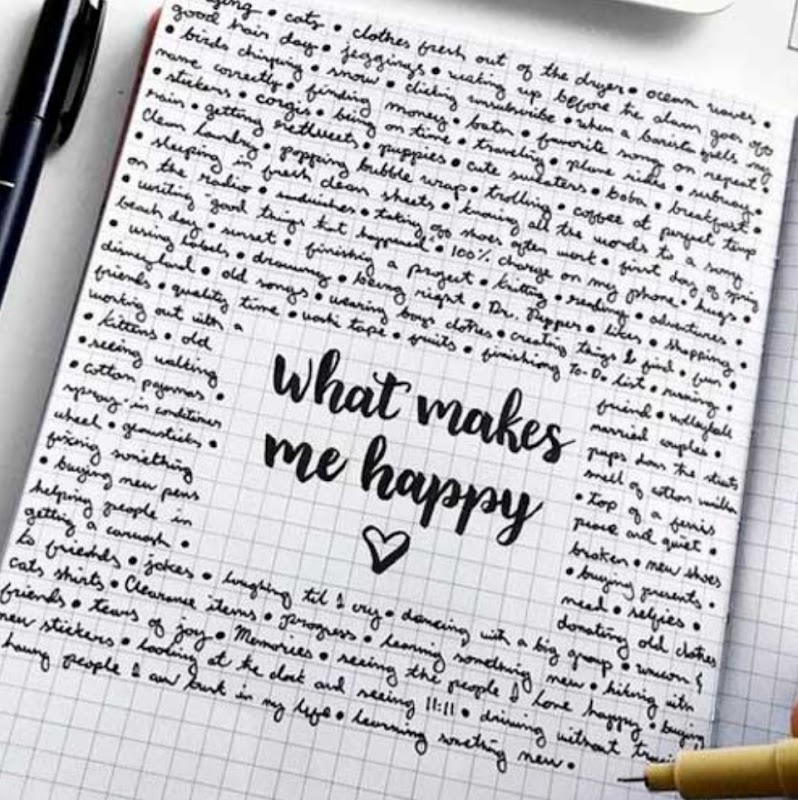 • cats • clothes fresh out of the dryer • ocean waves •
good hair day • jeggings • waking up before the alarm goes off
• birds chirping • snow • clicking unsubscribe • when a barista spells my
name correctly • finding money • favorite song on repeat •
• stickers • corgis • being on time • traveling • plane rides • subway •
rain • getting retweets • puppies • cute sweaters • boba • breakfast •
Clean laundry • popping bubble wrap • trolling • coffee at perfect temp
• sleeping in fresh clean sheets • knowing all the words to a song
on the radio • sandwiches • taking off shoes after work • first day of spring
• writing good things that happened • 100% charge on my phone • hugs •
beach day • sunset • finishing a project • knitting • reading • adventures •
• using labels • drawing • being right • Dr. Pepper • likes • shopping •
disneyland • old songs • wearing boys clothes • creating things I find • fun •
friends • quality time • washi tape • fruits • finishing To-Do list • running •
working out with a friend • volleyball
• kittens • old married couples •
• seeing walking pups down the street
• cotton pajamas • smell of cotton vanilla
spray-in conditioner • top of a ferris
wheel • peace and quiet •
fixing something broken • new shoes
• buying new pens • buying presents •
helping people in need • selfies •
getting a carwash • donating old clothes
what makes
me happy
to friends • jokes • laughing til I cry • dancing with a big group • unicorn &
cats shirts • Clearance items • progress • learning something new • hiking with
friends • tears of joy • Memories • seeing the people I love happy • buying
new stickers • looking at the clock and seeing 11:11 • driving without
having people I can trust in my life • learning something new •